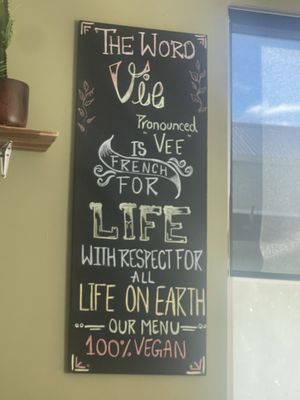 THE WORD
Vie
PRONOUNCED
"VEE"
IS
FRENCH
FOR
LIFE
WITH RESPECT FOR
ALL
LIFE ON EARTH
OUR MENU
100% VEGAN